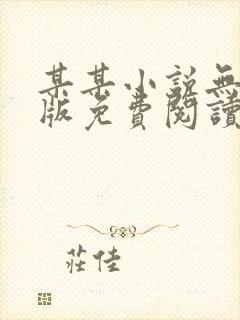 某某小說無
版免費閱讀
莊佳